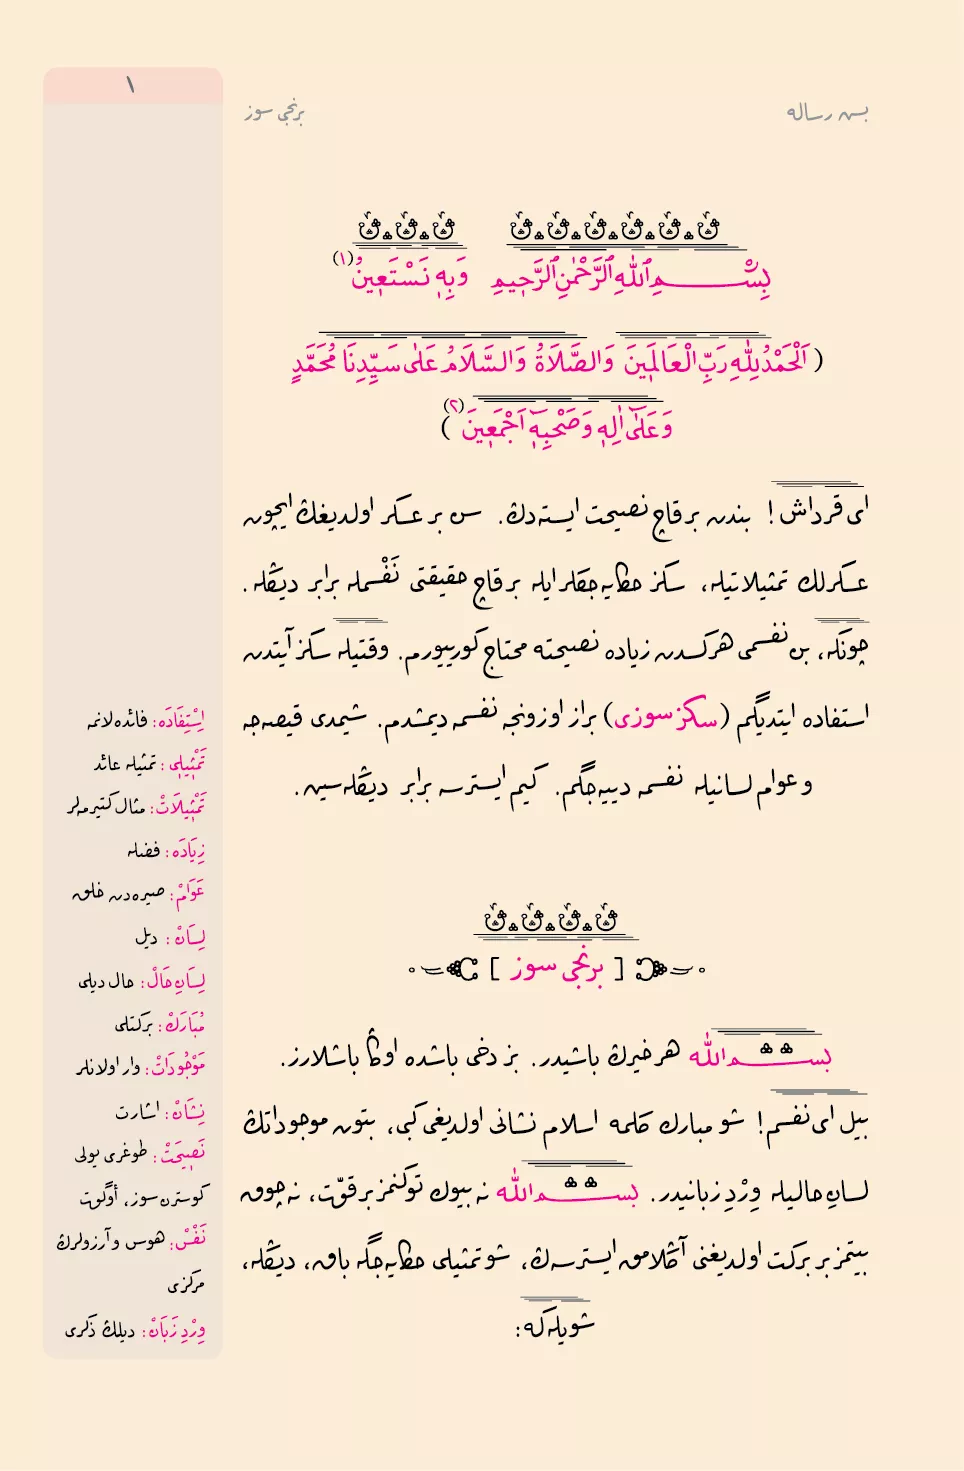 ١
بسم رساله
برنجی سوز
بِسْمِ ٱللّٰهِ ٱلرَّحْمٰنِ ٱلرَّحٖيمِ وَبِهٖ نَسْتَعٖينُ (١)
( اَلْحَمْدُ لِلّٰهِ رَبِّ الْعَالَمٖينَ وَالصَّلَاةُ وَالسَّلَامُ عَلٰى سَيِّدِنَا مُحَمَّدٍ
وَعَلٰٓى اٰلِهٖ وَصَحْبِهٖٓ اَجْمَعٖينَ (٢) )
ای قرداش! بندن برقاچ نصیحت ایسته‌دڭ. سن بر عسکر اولدیغڭ ایچون
عسکرلك تمثیلاتیله، سکز حکایه‌جکلر ایله برقاچ حقیقتی نَفْسمله برابر دیڭله.
چونکه، بن نفسمی هرکسدن زیاده نصیحته محتاج کورییورم. وقتیله سکز آیتدن
استفاده ایتدیگم (سکز سوزی) براز اوزونجه نفسمه دیمشدم. شیمدی قیصه‌جه
وعوام لسانیله نفسمه دییه‌جگم. کیم ایسترسه برابر دیڭله‌سین.
[ برنجی سوز ]
بســم الله هر خیرڭ باشیدر. بز دخی باشده اوڭا باشلارز.
بیل ای نفسم! شو مبارك کلمه اسلام نشانی اولدیغی کبی، بتون موجوداتڭ
لسانِ حالیله وِرْدِ زبانیدر. بســم الله نه بیوك توکنمز بر قوّت، نه چوق
بیتمز بر برکت اولدیغنی آڭلامق ایسترسه‌ڭ، شو تمثیلی حکایه‌جگه باق، دیڭله،
شویله‌که:
اِسْتِفَادَه: فائده‌لانمه
تَمْثٖيلٖى: تمثیله عائد
تَمْثٖيلَاتْ: مثال کتیرمه‌لر
زِيَادَه: فضله
عَوَامْ: صیره‌دن خلق
لِسَانْ: دیل
لِسَانِ حَالْ: حال دیلی
مُبَارَكْ: برکتلی
مَوْجُودَاتْ: وار اولانلر
نِشَانْ: اشارت
نَصٖيحَتْ: طوغری یولی
کوسترن سوز، اوگوت
نَفْسْ: هوس وآرزولرڭ
مرکزی
وِرْدِ زَبَانْ: دیلڭ ذکری